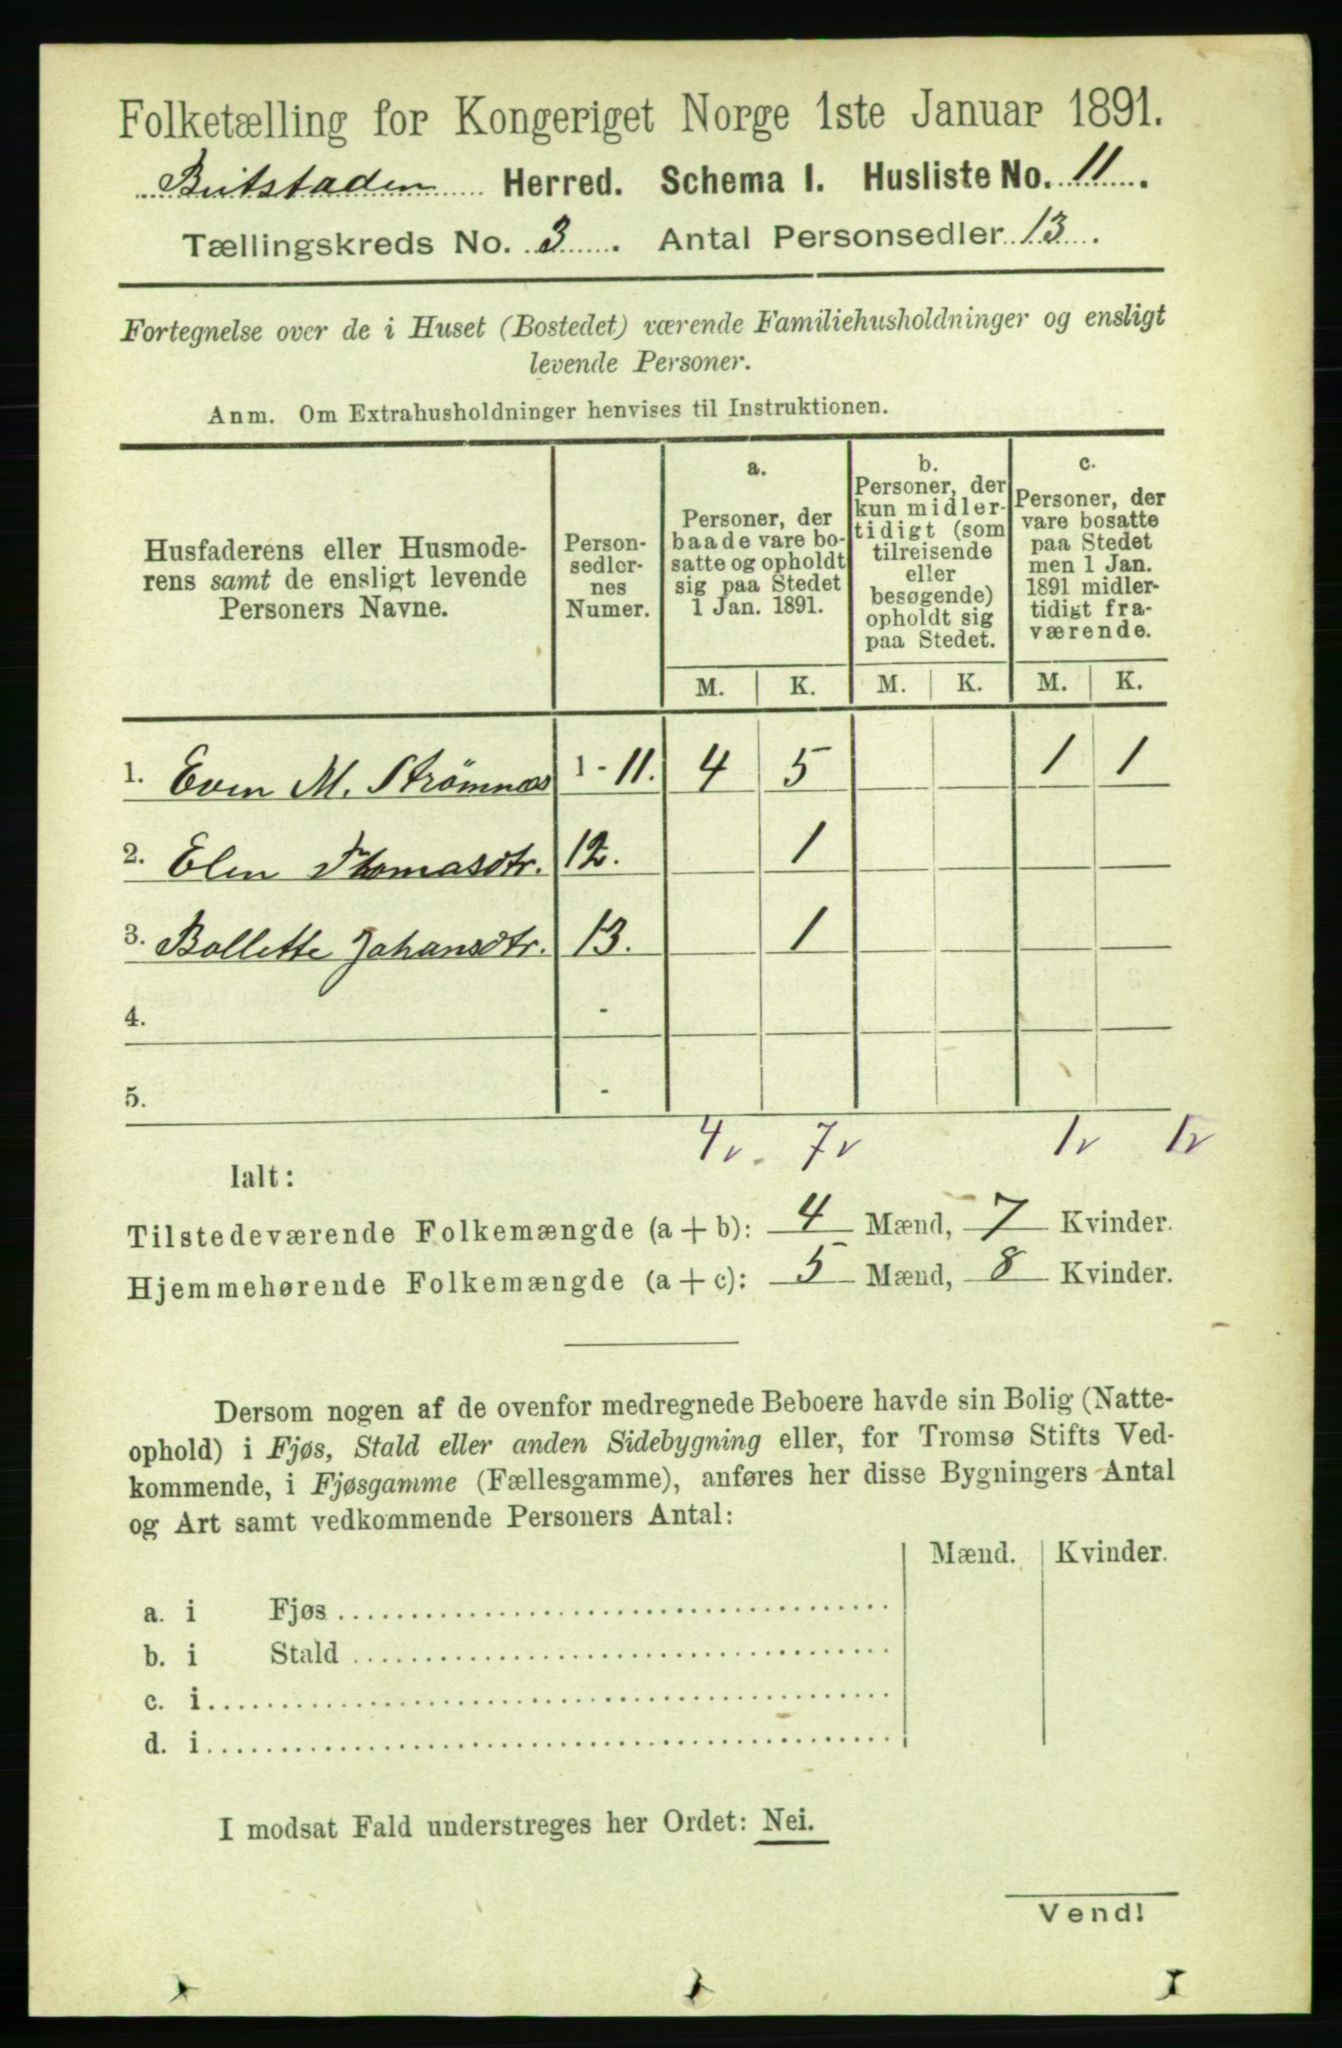 Folketælling for Kongeriget Norge 1ste Januar 1891.
Beitstaden Herred. Schema I. Husliste No. 11.
Tællingskreds No. 3. Antal Personsedler 13.
Fortegnelse over de i Huset (Bostedet) værende Familiehusholdninger og ensligt
levende Personer.
Anm. Om Extrahusholdninger henvises til Instruktionen.
Husfaderens eller Husmode-
rens samt de ensligt levende
Personers Navne.
Person-
sedler-
nes
Numer.
a.
Personer, der
baade vare bo-
satte og opholdt
sig paa Stedet
1 Jan. 1891.
b.
Personer, der
kun midler-
tidigt (som
tilreisende
eller
besøgende)
opholdt sig
paa Stedet.
c.
Personer, der
vare bosatte
paa Stedet
men 1 Jan.
1891 midler-
tidigt fra-
værende.
M. K. M. K. M. K.
1. Even M. Strømnæs 1 - 11. 4 5 1 1
2. Elen Thomasdtr. 12. 1
3. Bollette Johansdtr. 13. 1
4. -
5. -
4v. 7v 1v 1v
Ialt:
Tilstedeværende Folkemængde (a + b): 4 Mænd, 7 Kvinder.
Hjemmehørende Folkemængde (a + c): 5 Mænd, 8 Kvinder.
Dersom nogen af de ovenfor medregnede Beboere havde sin Bolig (Natte-
ophold) i Fjøs, Stald eller anden Sidebygning eller, for Tromsø Stifts Ved-
kommende, i Fjøsgamme (Fællesgamme), anføres her disse Bygningers Antal
og Art samt vedkommende Personers Antal:
Mænd. Kvinder.
a. i Fjøs
b. i Stald
c. i
d. i
I modsat Fald understreges her Ordet: Nei.
Vend!